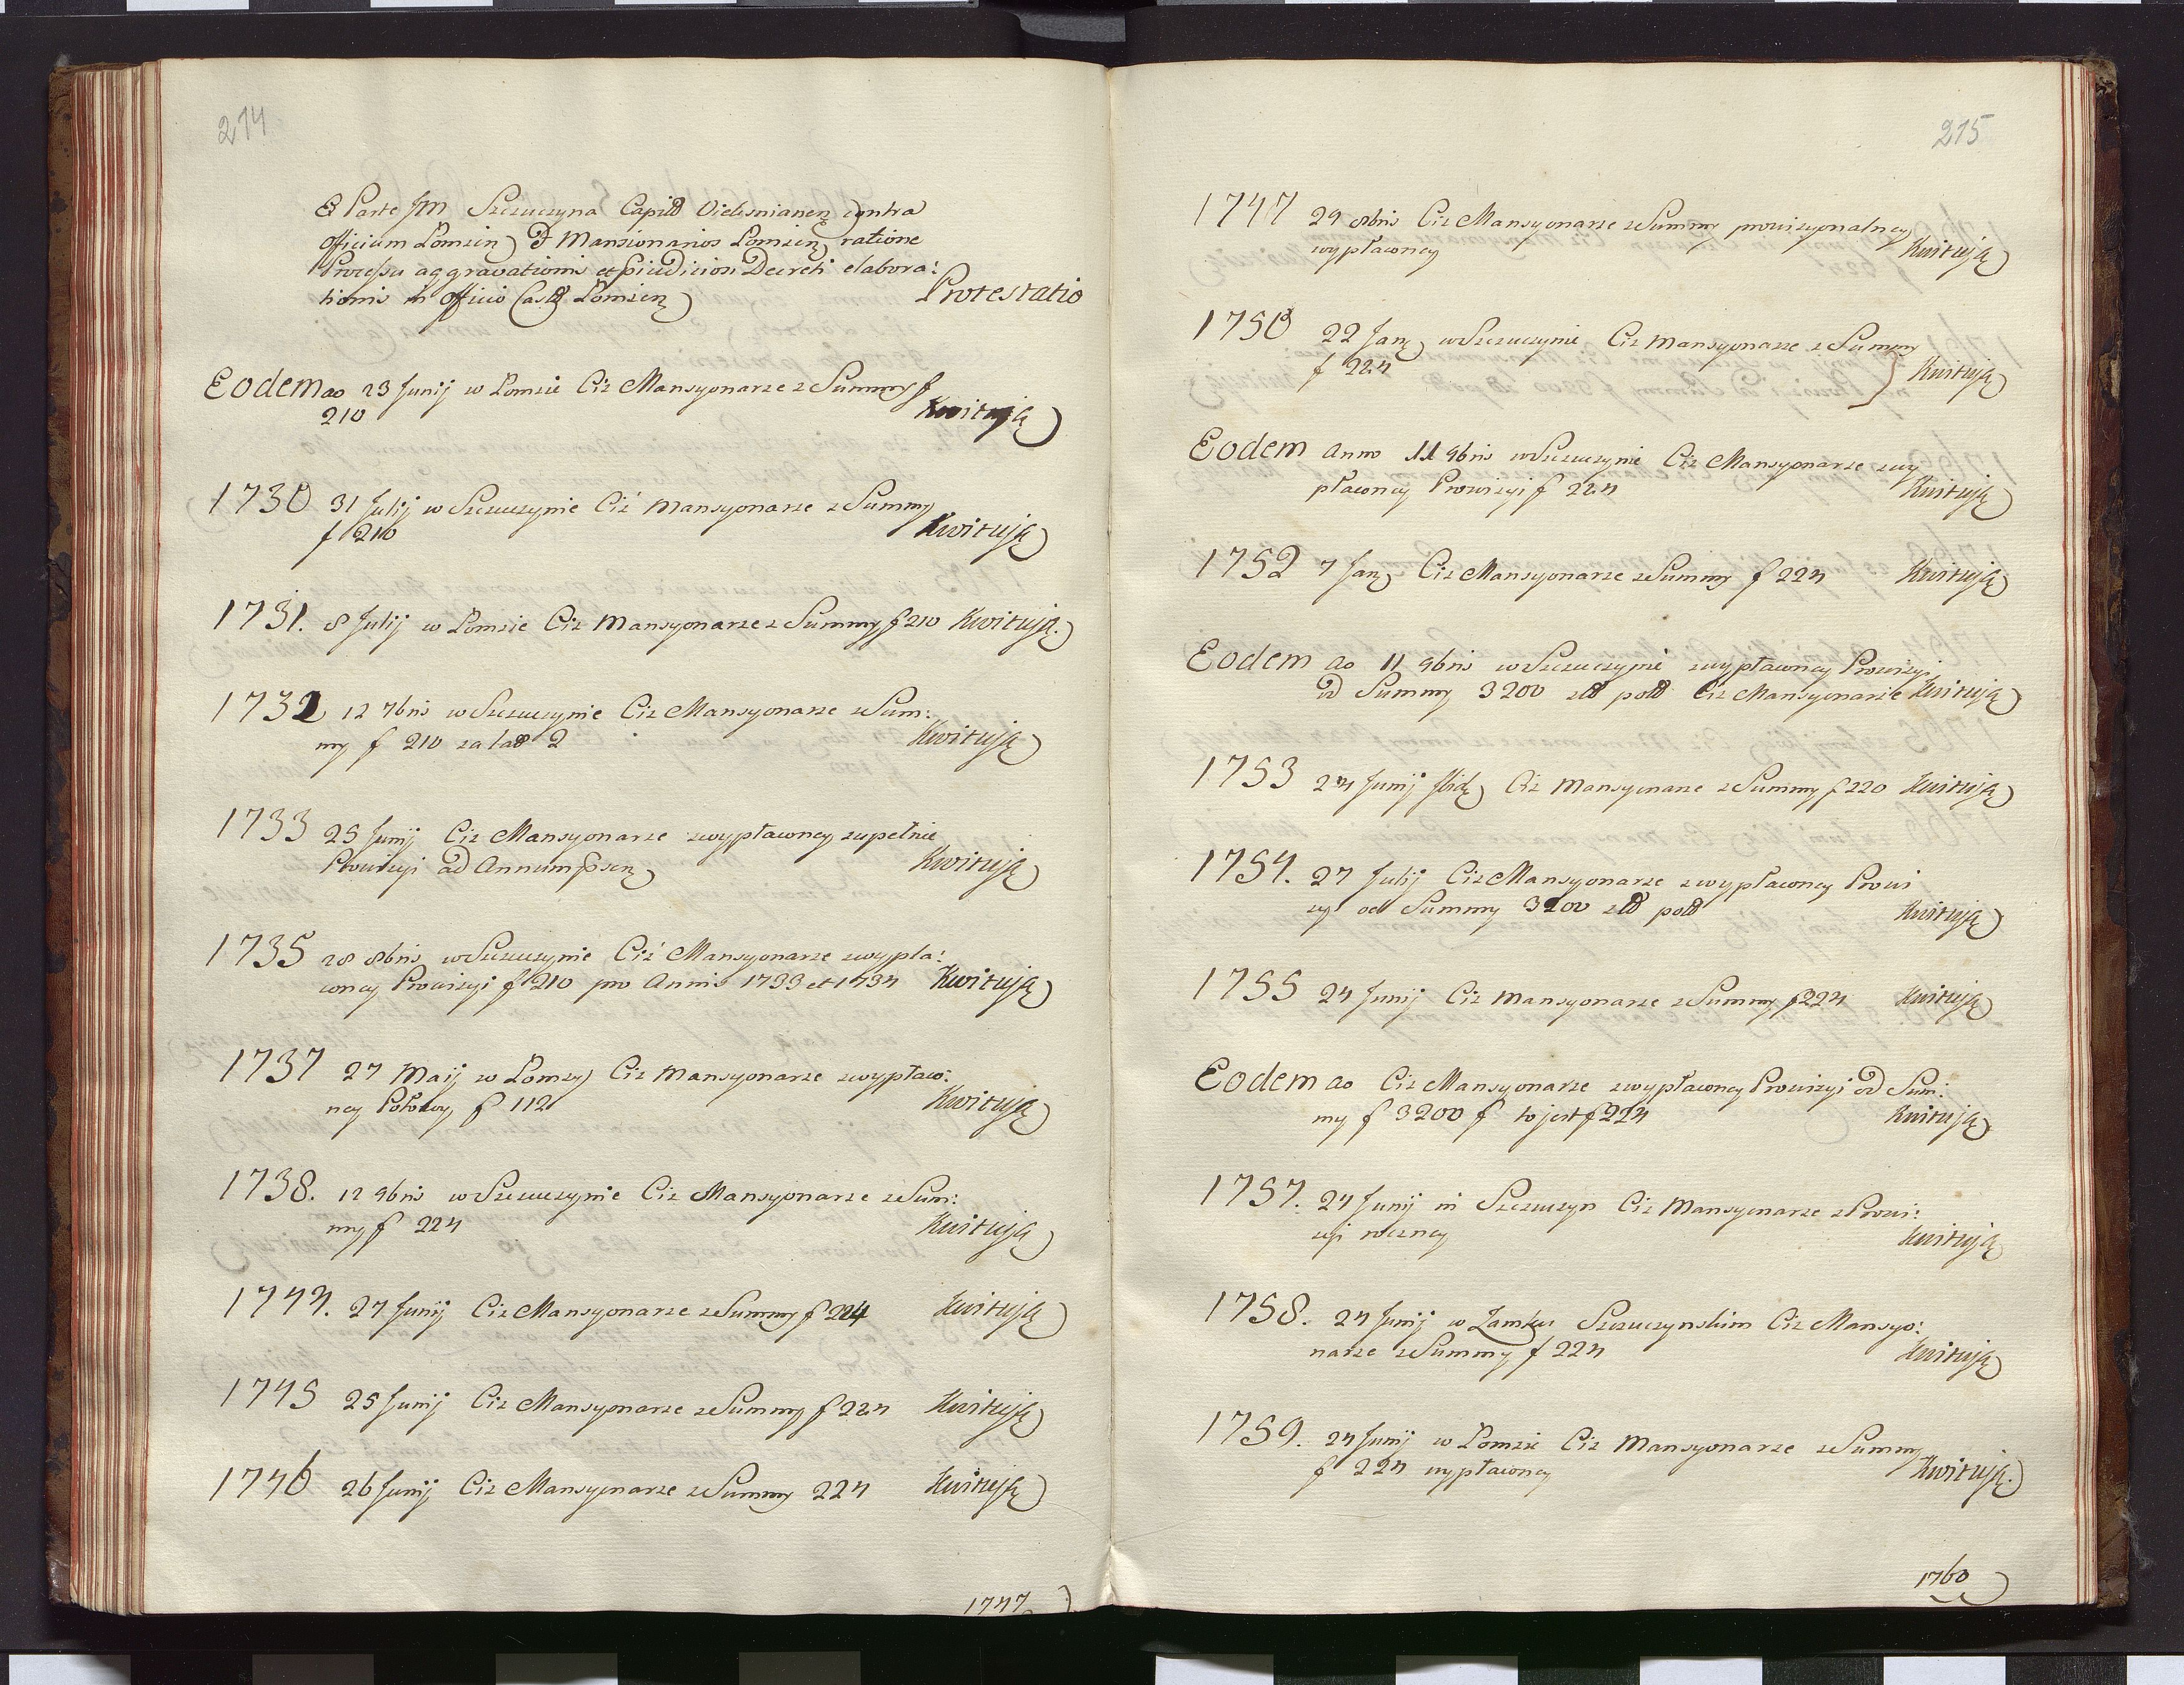 214
Ex Parte Jm Szczuczyna Capitl contra
Officium Lomzen et Mansionarios Lomzen ratione
Processu aggravationis Decreti elabora:
tionis in Officio Castr Lomzen Protestatio
Eodem ao 23 Junij w Lomzie Ciz Mansyonarze z Summy f
210 Kwitują
1730 31 Julij w Szczuczynie Ciż Mansyonarze z Summy
f 210 Kwitują
1731. 8 Julij w Lomzie Ciz Mansyonarze z Summy f 210 Kwitują.
1732 12 7bris w Szczuczynie Ciz Mansyonarze z Sum:
my f 210 za lat 2 Kwitują
1733 25 Junij Ciz Mansyonarze z wypłaconey zupełnie
Prowizyi ad Annum Psen Kwitują
1735 28 8bris w Szczuczynie Ciż Mansyonarze z wypła:
coney Prowizyi f 210 pro Annis 1733 et 1734 Kwitują
1737 27 Maij w Lomzy Ciz Mansyonarze z wypłaco:
ney Połowy f 112 Kwitują
1738. 12 9bris w Szczuczynie Ciz Mansyonarze z Sum:
my f 224 Kwitują
1744. 27 Junij Ciz Mansyonarze z Summy f 224 Kwitują
1745 25 Junij Ciz Mansyonarze z Summy f 224 Kwitują
1746 26 Junij Ciz Mansyonarze z Summy 224 Kwitują
1747
215
1747 29 8bris Ciz Mansyonarze z Summy prowizyonalney
wypłaconey Kwitują
1750 22 Jan w Szczuczynie Ciz Mansyonarze z Summy
f 224 Kwitują
Eodem Anno 11 9bris w Szczuczynie Ciz Mansyonarze z wy
płaconey Prowizyi f 224 Kwitują
1752 7 Jan Ciz Mansyonarze z Summy f 224 Kwitują
Eodem ao 11 9bris w Szczuczynie z wypłaconey Prowizyi
od Summy 3200 złł poll Ciz Mansyonarze Kwitują
1753 24 Junij Ibid Ciz Mansyonarze z Summy f 220 Kwitują
1754. 27 Julij Ciz Mansyonarze z wypłaconey Prowi
zyi od Summy 3200 złł poll Kwitują
1755 24 Junij Ciz Mansyonarze z Summy f 224 Kwitują
Eodem ao Ciz Mansyonarze z wypłaconey Prowizyi od Sum:
my f 3200 f to jest f 224 Kwitują
1757. 24 Junij in Szczuczyn Ciz Mansyonarze z Prowi:
zyi roczney Kwitują
1758. 24 Junij w Zamku Szczuczynskim Ciz Mansyo:
narze z Summy f 224 Kwitują
1759. 24 Junij w Lomzie Ciz Mansyonarze z Summy
f 224 wypłaconey Kwitują.
1760